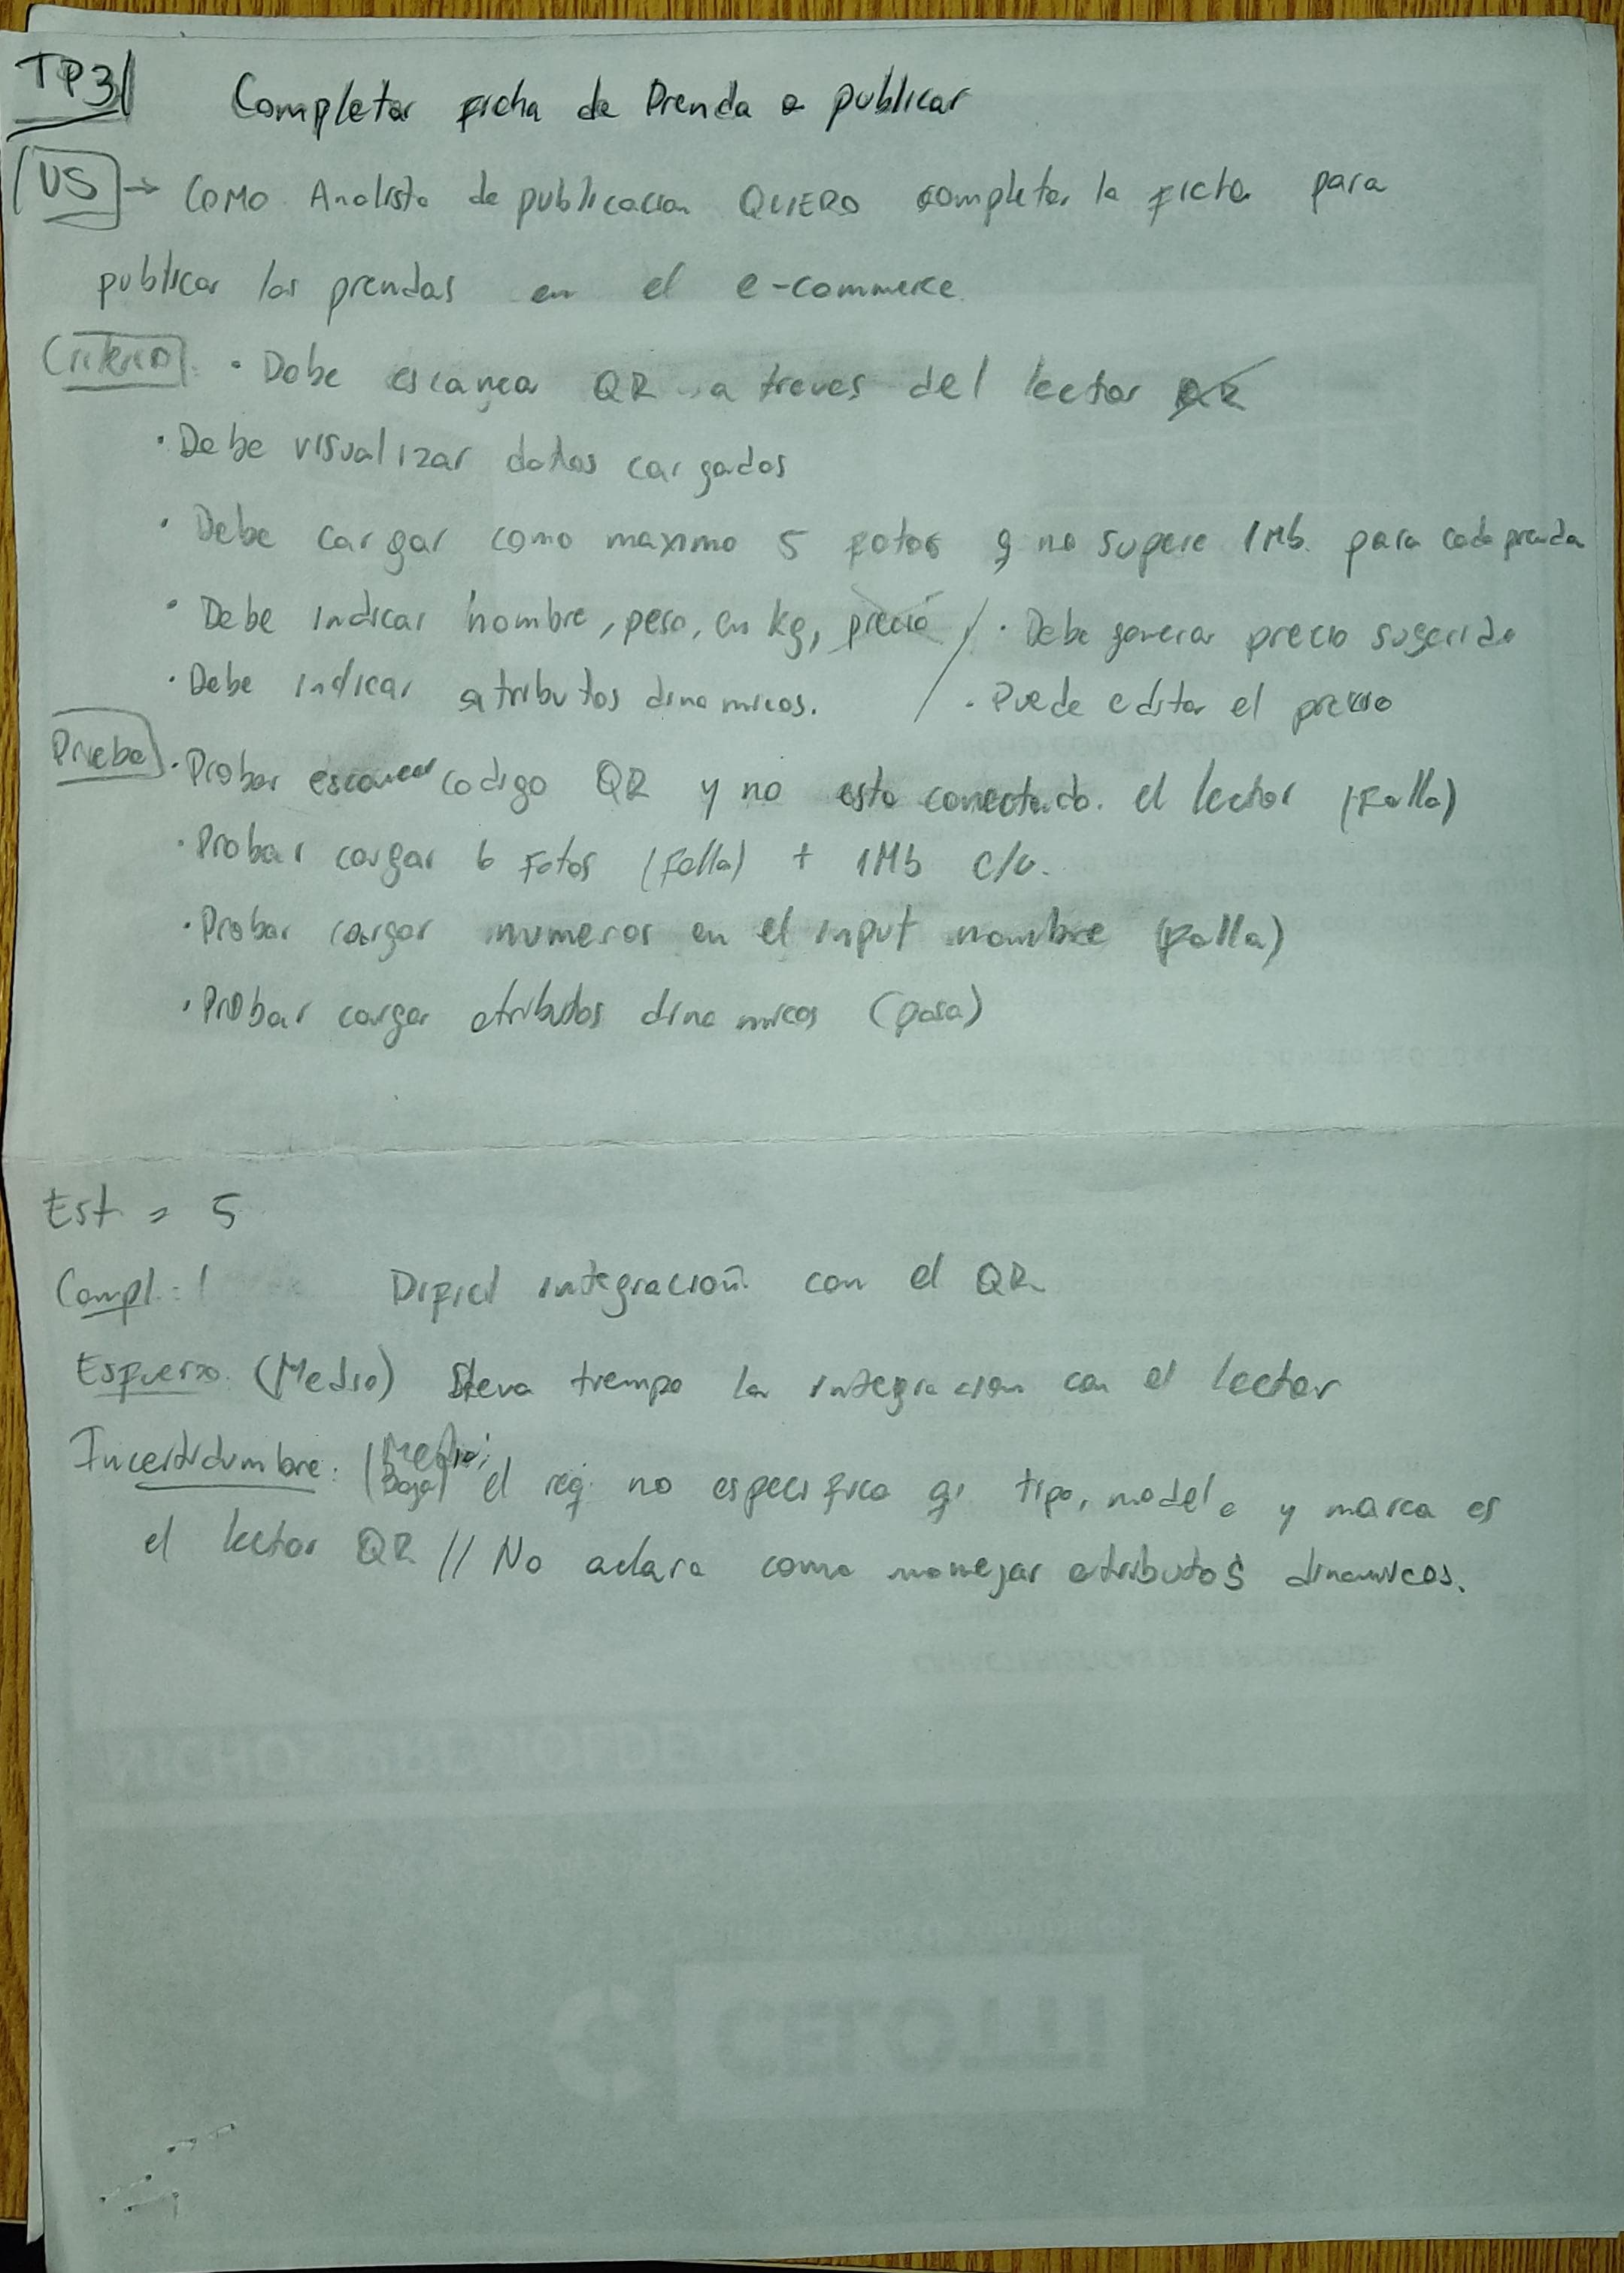 TP3
Completar ficha de Prenda a publicar
US → COMO Analista de publicacion QUIERO completar la ficha para
publicar las prendas en el e-commerce.
Criterio · Debe escanear QR a traves del lector QR
· Debe visualizar datos cargados
· Debe cargar como maximo 5 fotos q no supere 1Mb. para cada prenda
· Debe indicar nombre, peso, en kg, precio / · Debe generar precio sugerido
· Debe indicar atributos dinamicos. / · Puede editar el precio
Prueba · Probar escanear codigo QR y no esta conectado. el lector (Falla)
· Probar cargar 6 Fotos (Falla) + 1Mb c/u.
· Probar cargar numeros en el input nombre (Falla)
· Probar cargar atributos dinamicos (pasa)
Est = 5
Compl: Dificil integracion con el QR
Esfuerzo. (Medio) lleva tiempo la integracion con el lector
Incertidumbre: (Media; Baja) el req. no especifica q' tipo, modelo y marca es
el lector QR // No aclara como manejar atributos dinamicos.
CETOLTI